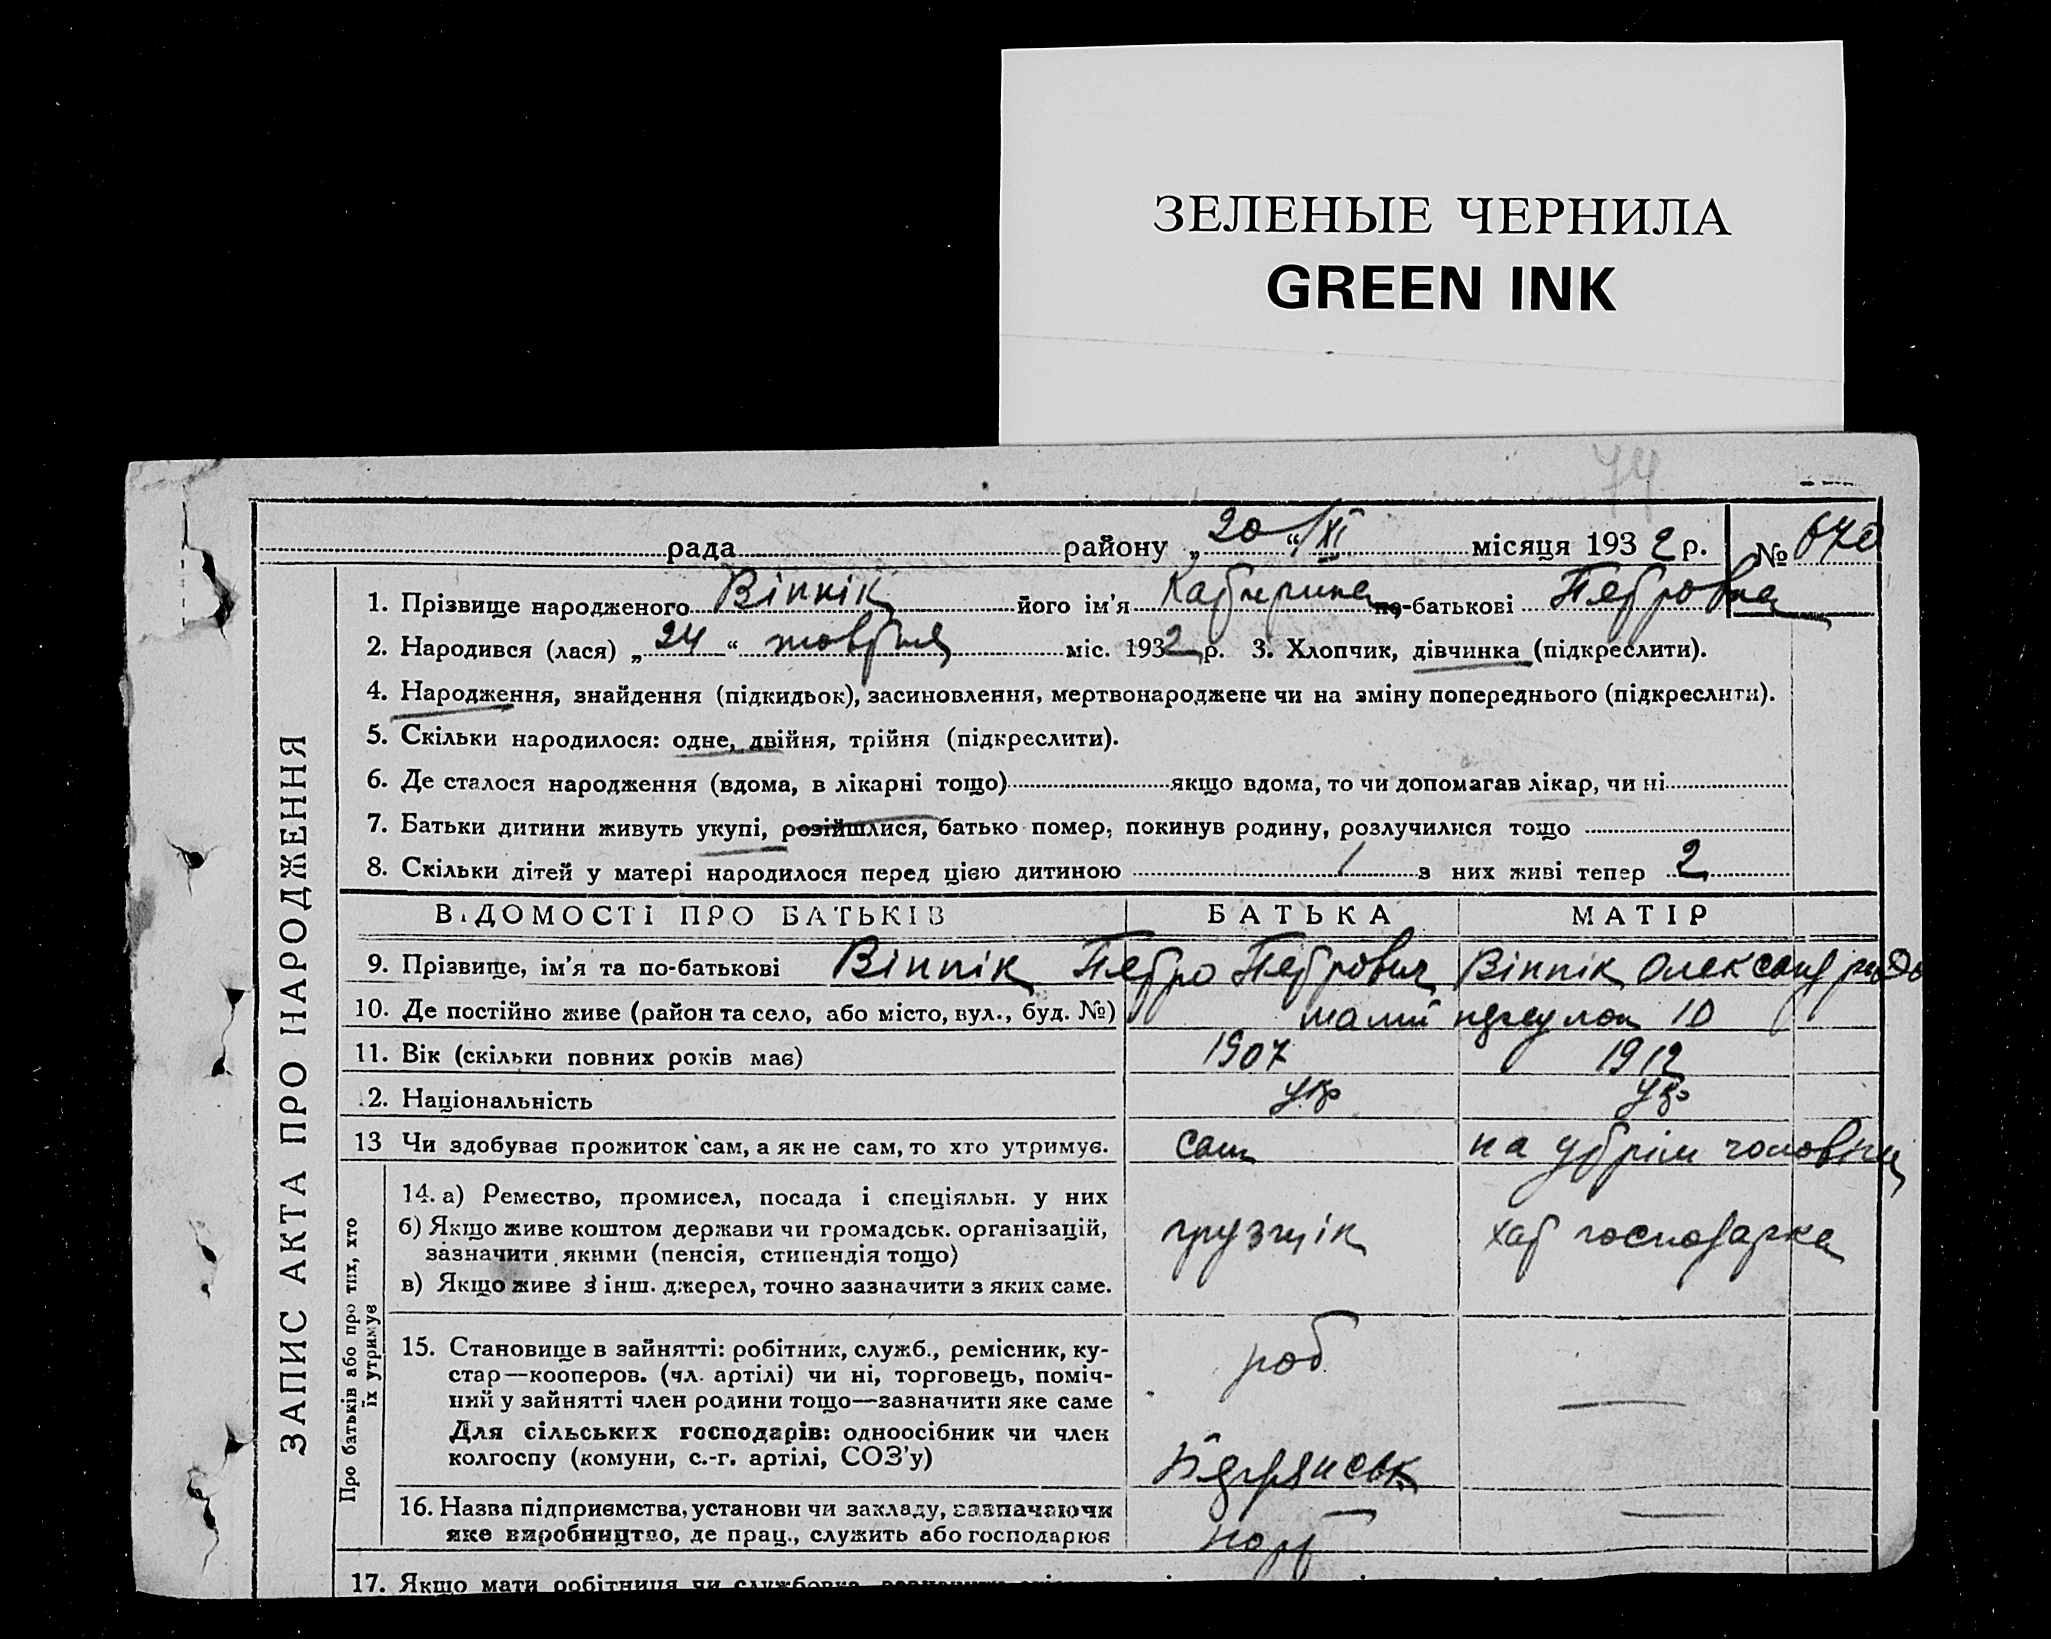 ЗЕЛЕНЫЕ ЧЕРНИЛА
GREEN INK
74
рада району „20“/XI місяця 1932 р. № 670
1. Прізвище народженого Віннік його ім'я Катерина по-батькові Петровна
2. Народився (лася) „24“ жовтня міс. 1932 р. 3. Хлопчик, дівчинка (підкреслити).
4. Народження, знайдення (підкидьок), засиновлення, мертвонароджене чи на зміну попереднього (підкреслити).
5. Скільки народилося: одне, двійня, трійня (підкреслити).
6. Де сталося народження (вдома, в лікарні тощо) якщо вдома, то чи допомагав лікар, чи ні
7. Батьки дитини живуть укупі, розійшлися, батько помер, покинув родину, розлучилися тощо
8. Скільки дітей у матері народилося перед цією дитиною 1 з них живі тепер 2
ВІДОМОСТІ ПРО БАТЬКІВ БАТЬКА МАТІР
9. Прізвище, ім'я та по-батькові Віннік Петро Петрович Віннік Олександра
10. Де постійно живе (район та село, або місто, вул., буд. №) малий 10
11. Вік (скільки повних років має) 1907 1912
2. Національність укр укр
13 Чи здобуває прожиток сам, а як не сам, то хто утримує. сам на утрім чоловіка
14. а) Ремество, промисел, посада і спеціяльн. у них
б) Якщо живе коштом держави чи громадськ. організацій, грузчік хат господарка
зазначити якими (пенсія, стипендія тощо)
в) Якщо живе з інш. джерел, точно зазначити з яких саме.
15. Становище в зайнятті: робітник, служб., ремісник, ку- роб
стар—кооперов. (чл. артілі) чи ні, торговець, поміч-
ний у зайнятті член родини тощо—зазначити яке саме —
Для сільських господарів: одноосібник чи член
колгоспу (комуни, с.-г. артілі, СОЗ'у)
16. Назва підприємства, установи чи закладу, зазначаючи —
яке виробництво, де прац., служить або господарює порт
17. Якщо мати робітниця чи службовка,
ЗАПИС АКТА ПРО НАРОДЖЕННЯ
Про батьків або про тих, хто
їх утримує